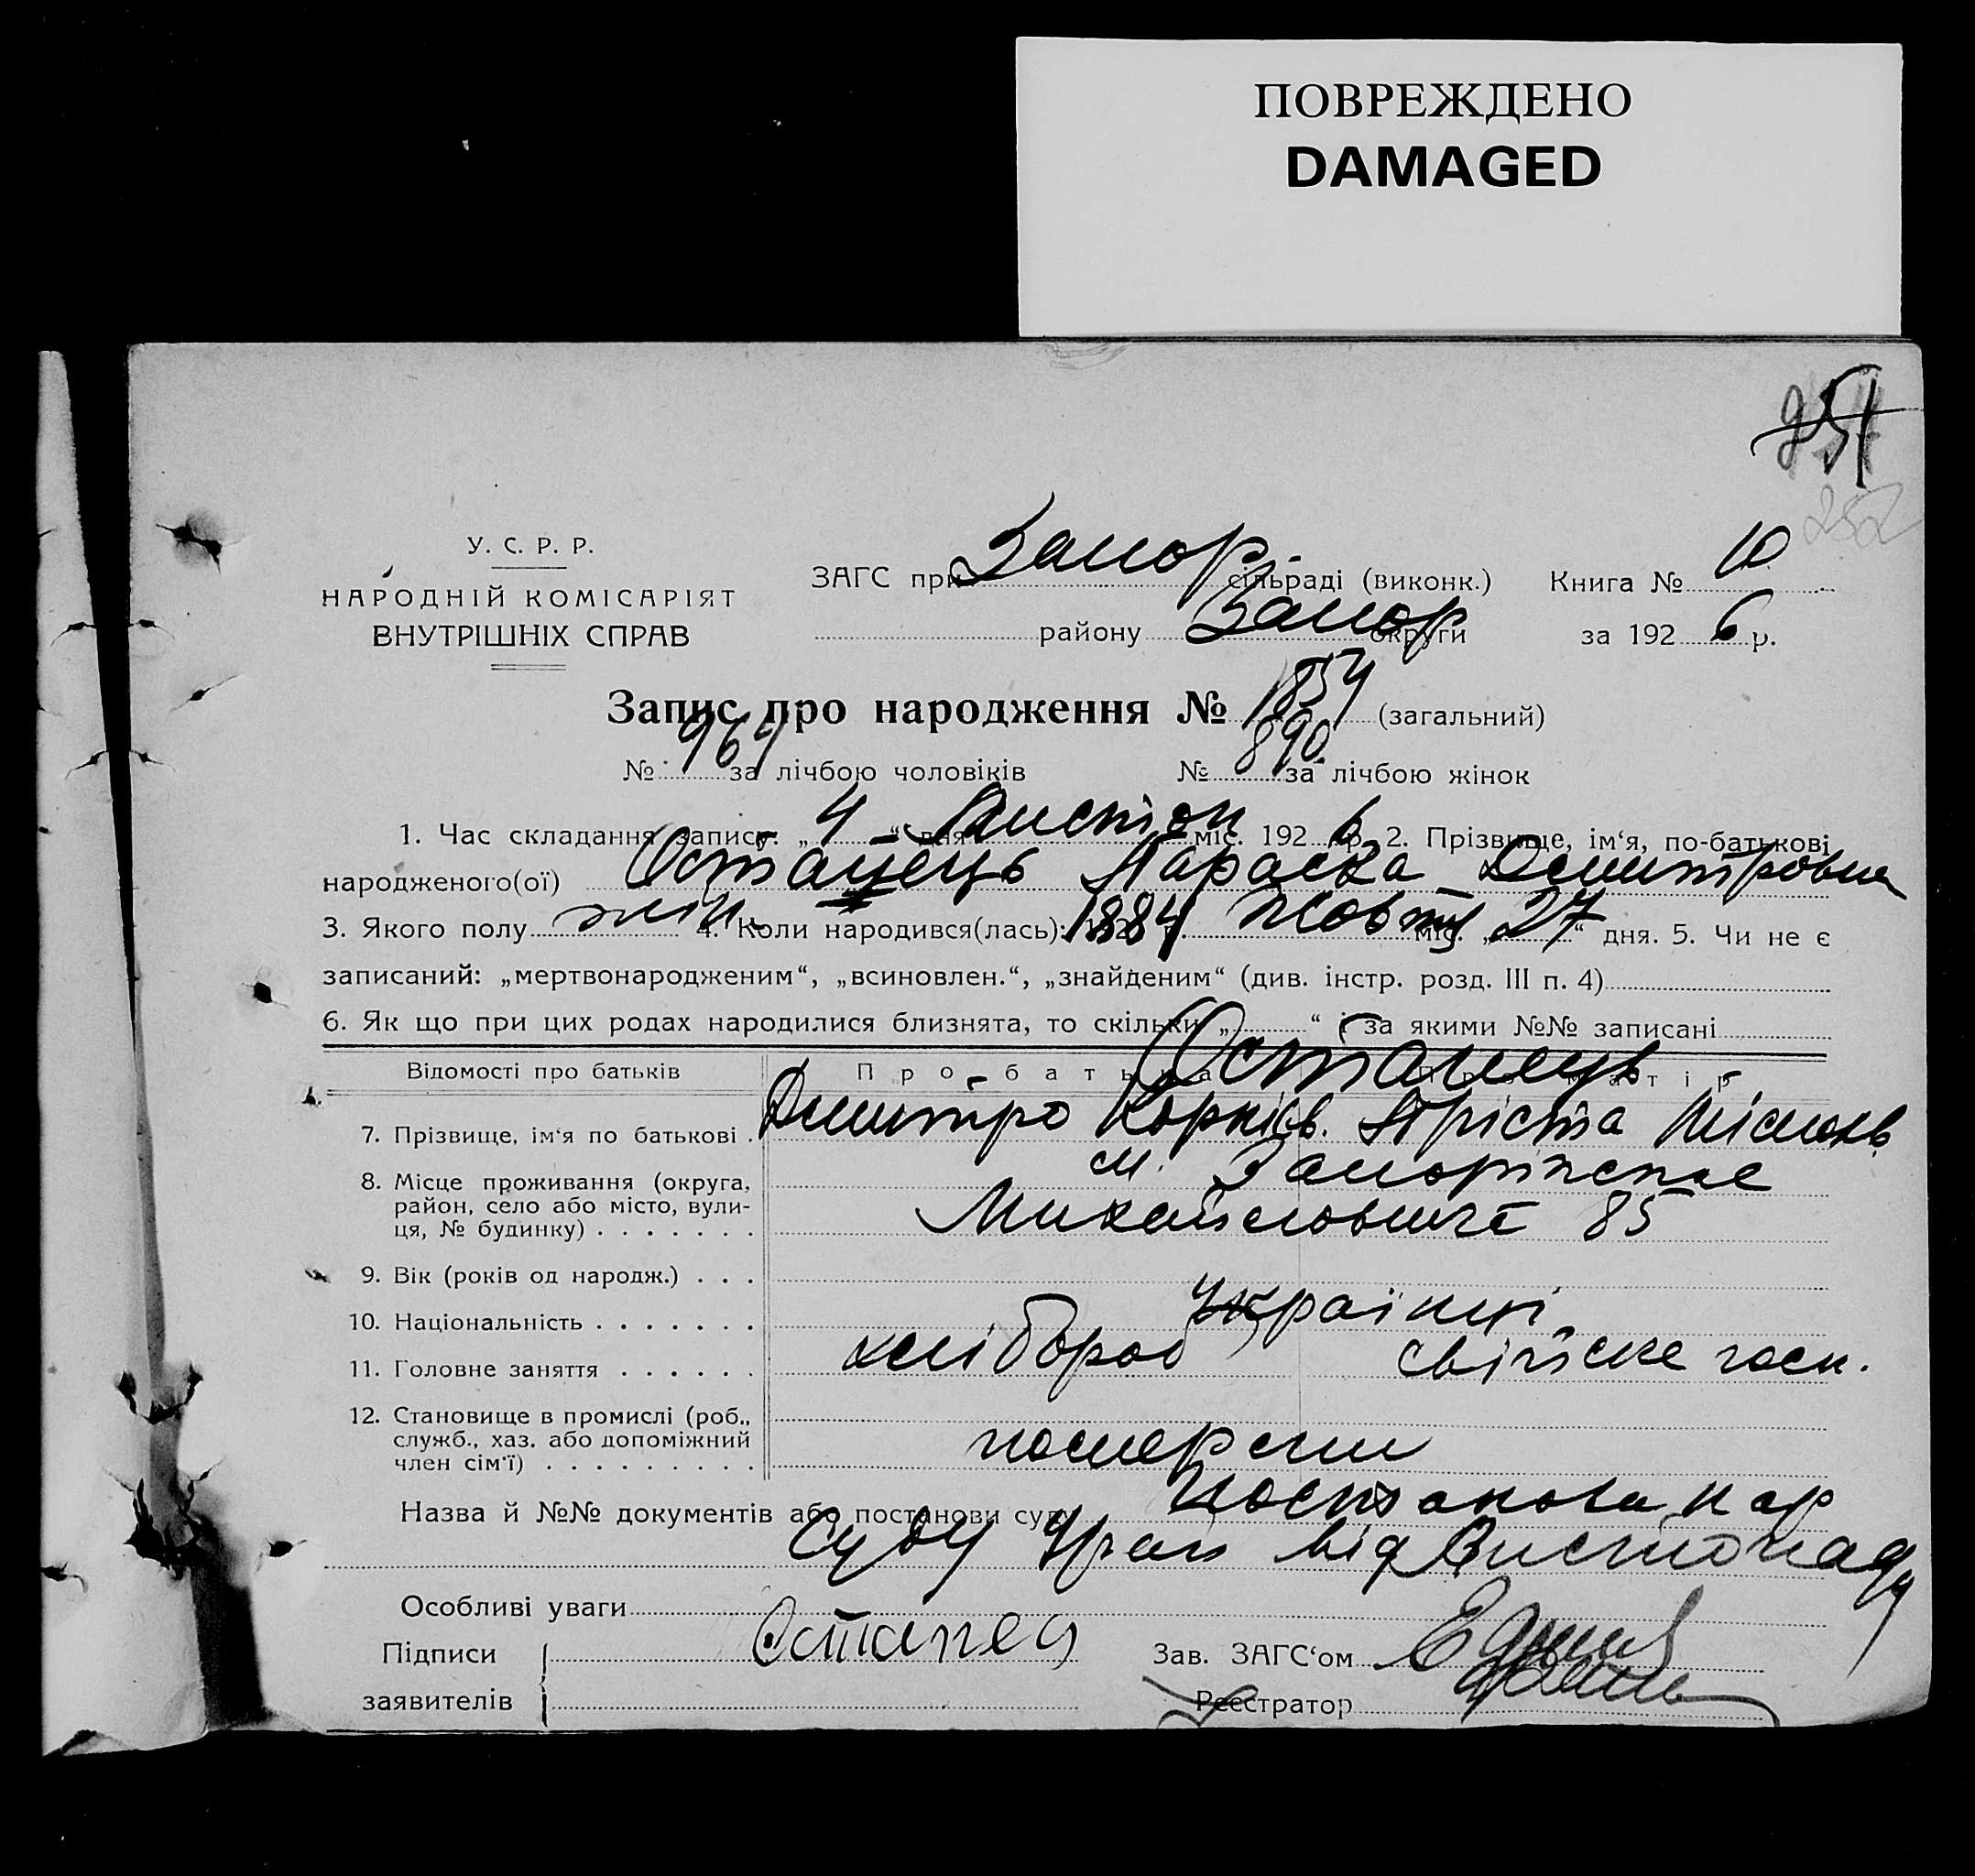 ПОВРЕЖДЕНО
DAMAGED
252
У. С. Р. Р.
НАРОДНІЙ КОМІСАРІЯТ
ВНУТРІШНІХ СПРАВ
ЗАГС при Запор. сільраді (виконк.) Книга № 10
району Запор округи за 1926 р.
Запис про народження № (загальний)
№ за лічбою чоловіків № 890 за лічбою жінок
1. Час складання запису: „4“ дня Листоп міс. 1926 р. 2. Прізвище, ім‘я, по-батькові
народженого(ої) Остапець Параска Дмитровна
3. Якого полу жін. 4. Коли народився(лась): 1884 Жовтня міс. „27“ дня. 5. Чи не є
записаний: „мертвонародженим“, „всиновлен.“, „знайденим“ (див. інстр. розд. III п. 4)
6. Як що при цих родах народилися близнята, то скільки „ “ і за якими №№ записані
Відомості про батьків Про батька Про матір
Остапець
7. Прізвище, ім‘я по батькові . Дмитро Корніїв.
8. Місце проживання (округа, район, село або місто, вулиця, № будинку) . . . . . . . м. Запоріжжє
85
9. Вік (років од народж.) . . .
10. Національність . . . . . . . Українці
11. Головне заняття . . . . . . хлібороб свійске госп.
12. Становище в промислі (роб., служб., хаз. або допоміжний член сім‘ї) . . . . . . . . . померли
Назва й №№ документів або постанови суду Постанова нар
суду від Листопаду
Особливі уваги
Підписи заявителів Остапец
Зав. ЗАГС‘ом
Реєстратор